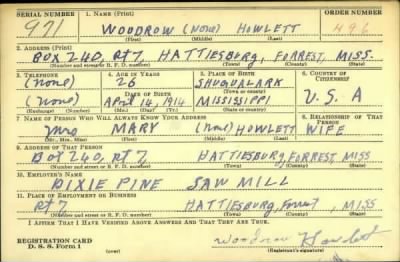 SERIAL NUMBER 1. NAME (Print) ORDER NUMBER
971 WOODROW (None) HOWLETT 496
(First) (Middle) (Last)
2. ADDRESS (Print)
BOX 240, RT 7 HATTIESBURG, FORREST, MISS.
(Number and street or R. F. D. number) (Town) (County) (State)
3. TELEPHONE 4. AGE IN YEARS 5. PLACE OF BIRTH 6. COUNTRY OF CITIZENSHIP
(None) 26 SHUQUALARK U.S.A
DATE OF BIRTH (Town or county)
(None) April 14, 1914 MISSISSIPPI
(Exchange) (Number) (Mo.) (Day) (Yr.) (State or country)
7. NAME OF PERSON WHO WILL ALWAYS KNOW YOUR ADDRESS 8. RELATIONSHIP OF THAT PERSON
Mrs MARY (None) HOWLETT WIFE
(Mr., Mrs., Miss) (First) (Middle) (Last)
9. ADDRESS OF THAT PERSON
Box 240, RT 7, HATTIESBURG, FORREST, MISS
(Number and street or R. F. D. number) (Town) (County) (State)
10. EMPLOYER'S NAME
DIXIE PINE SAW MILL
11. PLACE OF EMPLOYMENT OR BUSINESS
RT 7 HATTIESBURG, Forrest, MISS
(Number and street or R. F. D. number) (Town) (County) (State)
I AFFIRM THAT I HAVE VERIFIED ABOVE ANSWERS AND THAT THEY ARE TRUE.
REGISTRATION CARD
D. S. S. Form 1 (over) Woodrow Howlett
(Registrant's signature)